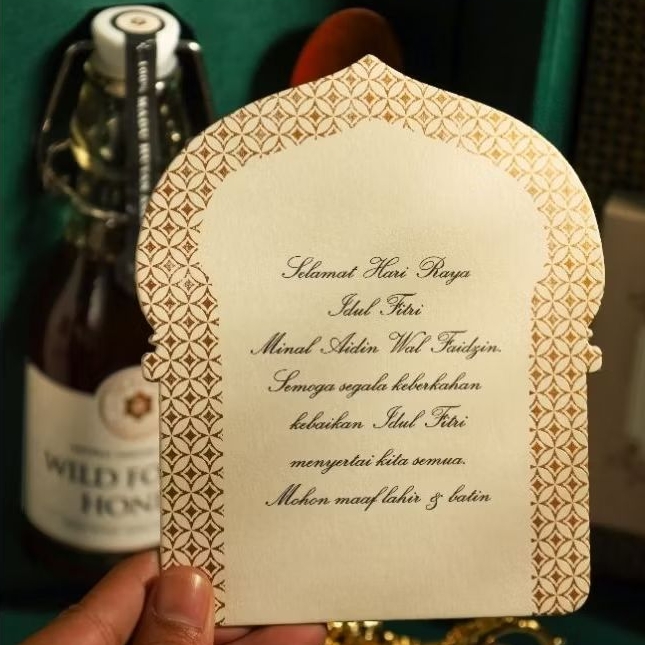 Selamat Hari Raya
Idul Fitri
Minal Aidin Wal Faidzin.
Semoga segala keberkahan
kebaikan Idul Fitri
menyertai kita semua.
Mohon maaf lahir & batin
100% MADU HUTAN
WILD
HON